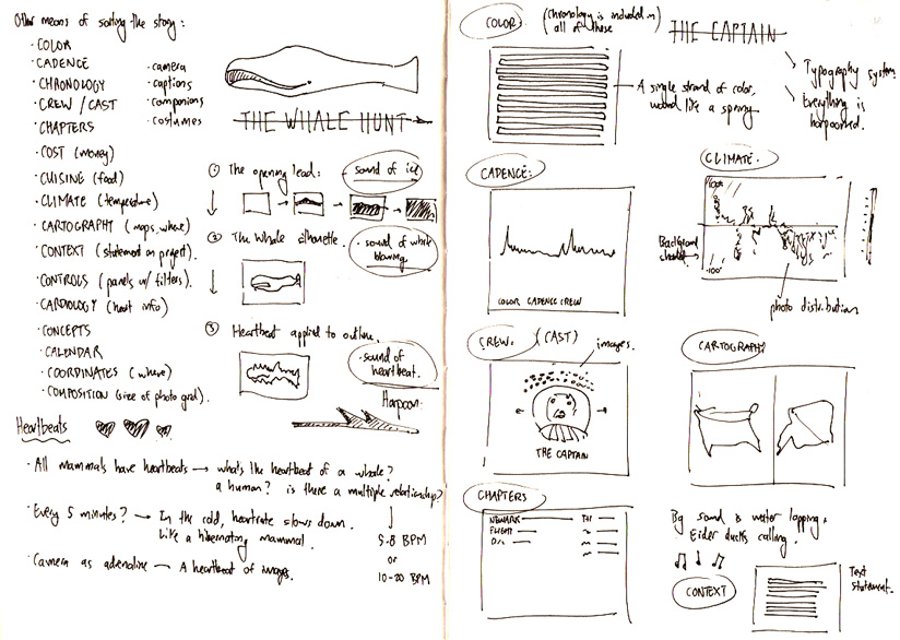 Other means of sorting the story:
· COLOR
· CADENCE
· CHRONOLOGY
· CREW / CAST
· CHAPTERS
· COST (money)
· CUISINE (food)
· CLIMATE (temperature)
· CARTOGRAPHY (maps, where)
· CONTEXT (statement on project).
· CONTROLS (panels w/ filters).
· CARDIOLOGY (heart info)
· CONCEPTS
· CALENDAR
· COORDINATES (where)
· COMPOSITION (size of photo grid).
· camera
· captions
· companions
· costumes
THE WHALE HUNT
① The opening lead:
· sound of ice
② The Whale silhouette.
· sound of whale
blowing
③ Heartbeat applied to outline.
· sound of
heartbeat.
Harpoon:
Heartbeats
· All mammals have heartbeats → what's the heartbeat of a whale?
a human? is there a multiple relationship?
· Every 5 minutes? → In the cold, heartrate slows down.
Like a hibernating mammal.
5-8 BPM
or
10-20 BPM
· Camera as adrenaline – A heartbeat of images.
COLOR.
(Chronology is included in
all of these
THE CAPTAIN
Typography system.
Everything is
harpooned.
A single strand of color,
wound like a spring
CADENCE:
COLOR CADENCE CREW
CLIMATE.
100°
-100°
Background
photo distribution
CREW. (CAST)
images.
THE CAPTAIN
CARTOGRAPHY
CHAPTERS
NEWARK
FLIGHT
Bg sound is water lapping +
Eider ducks calling.
CONTEXT
Text
statement.